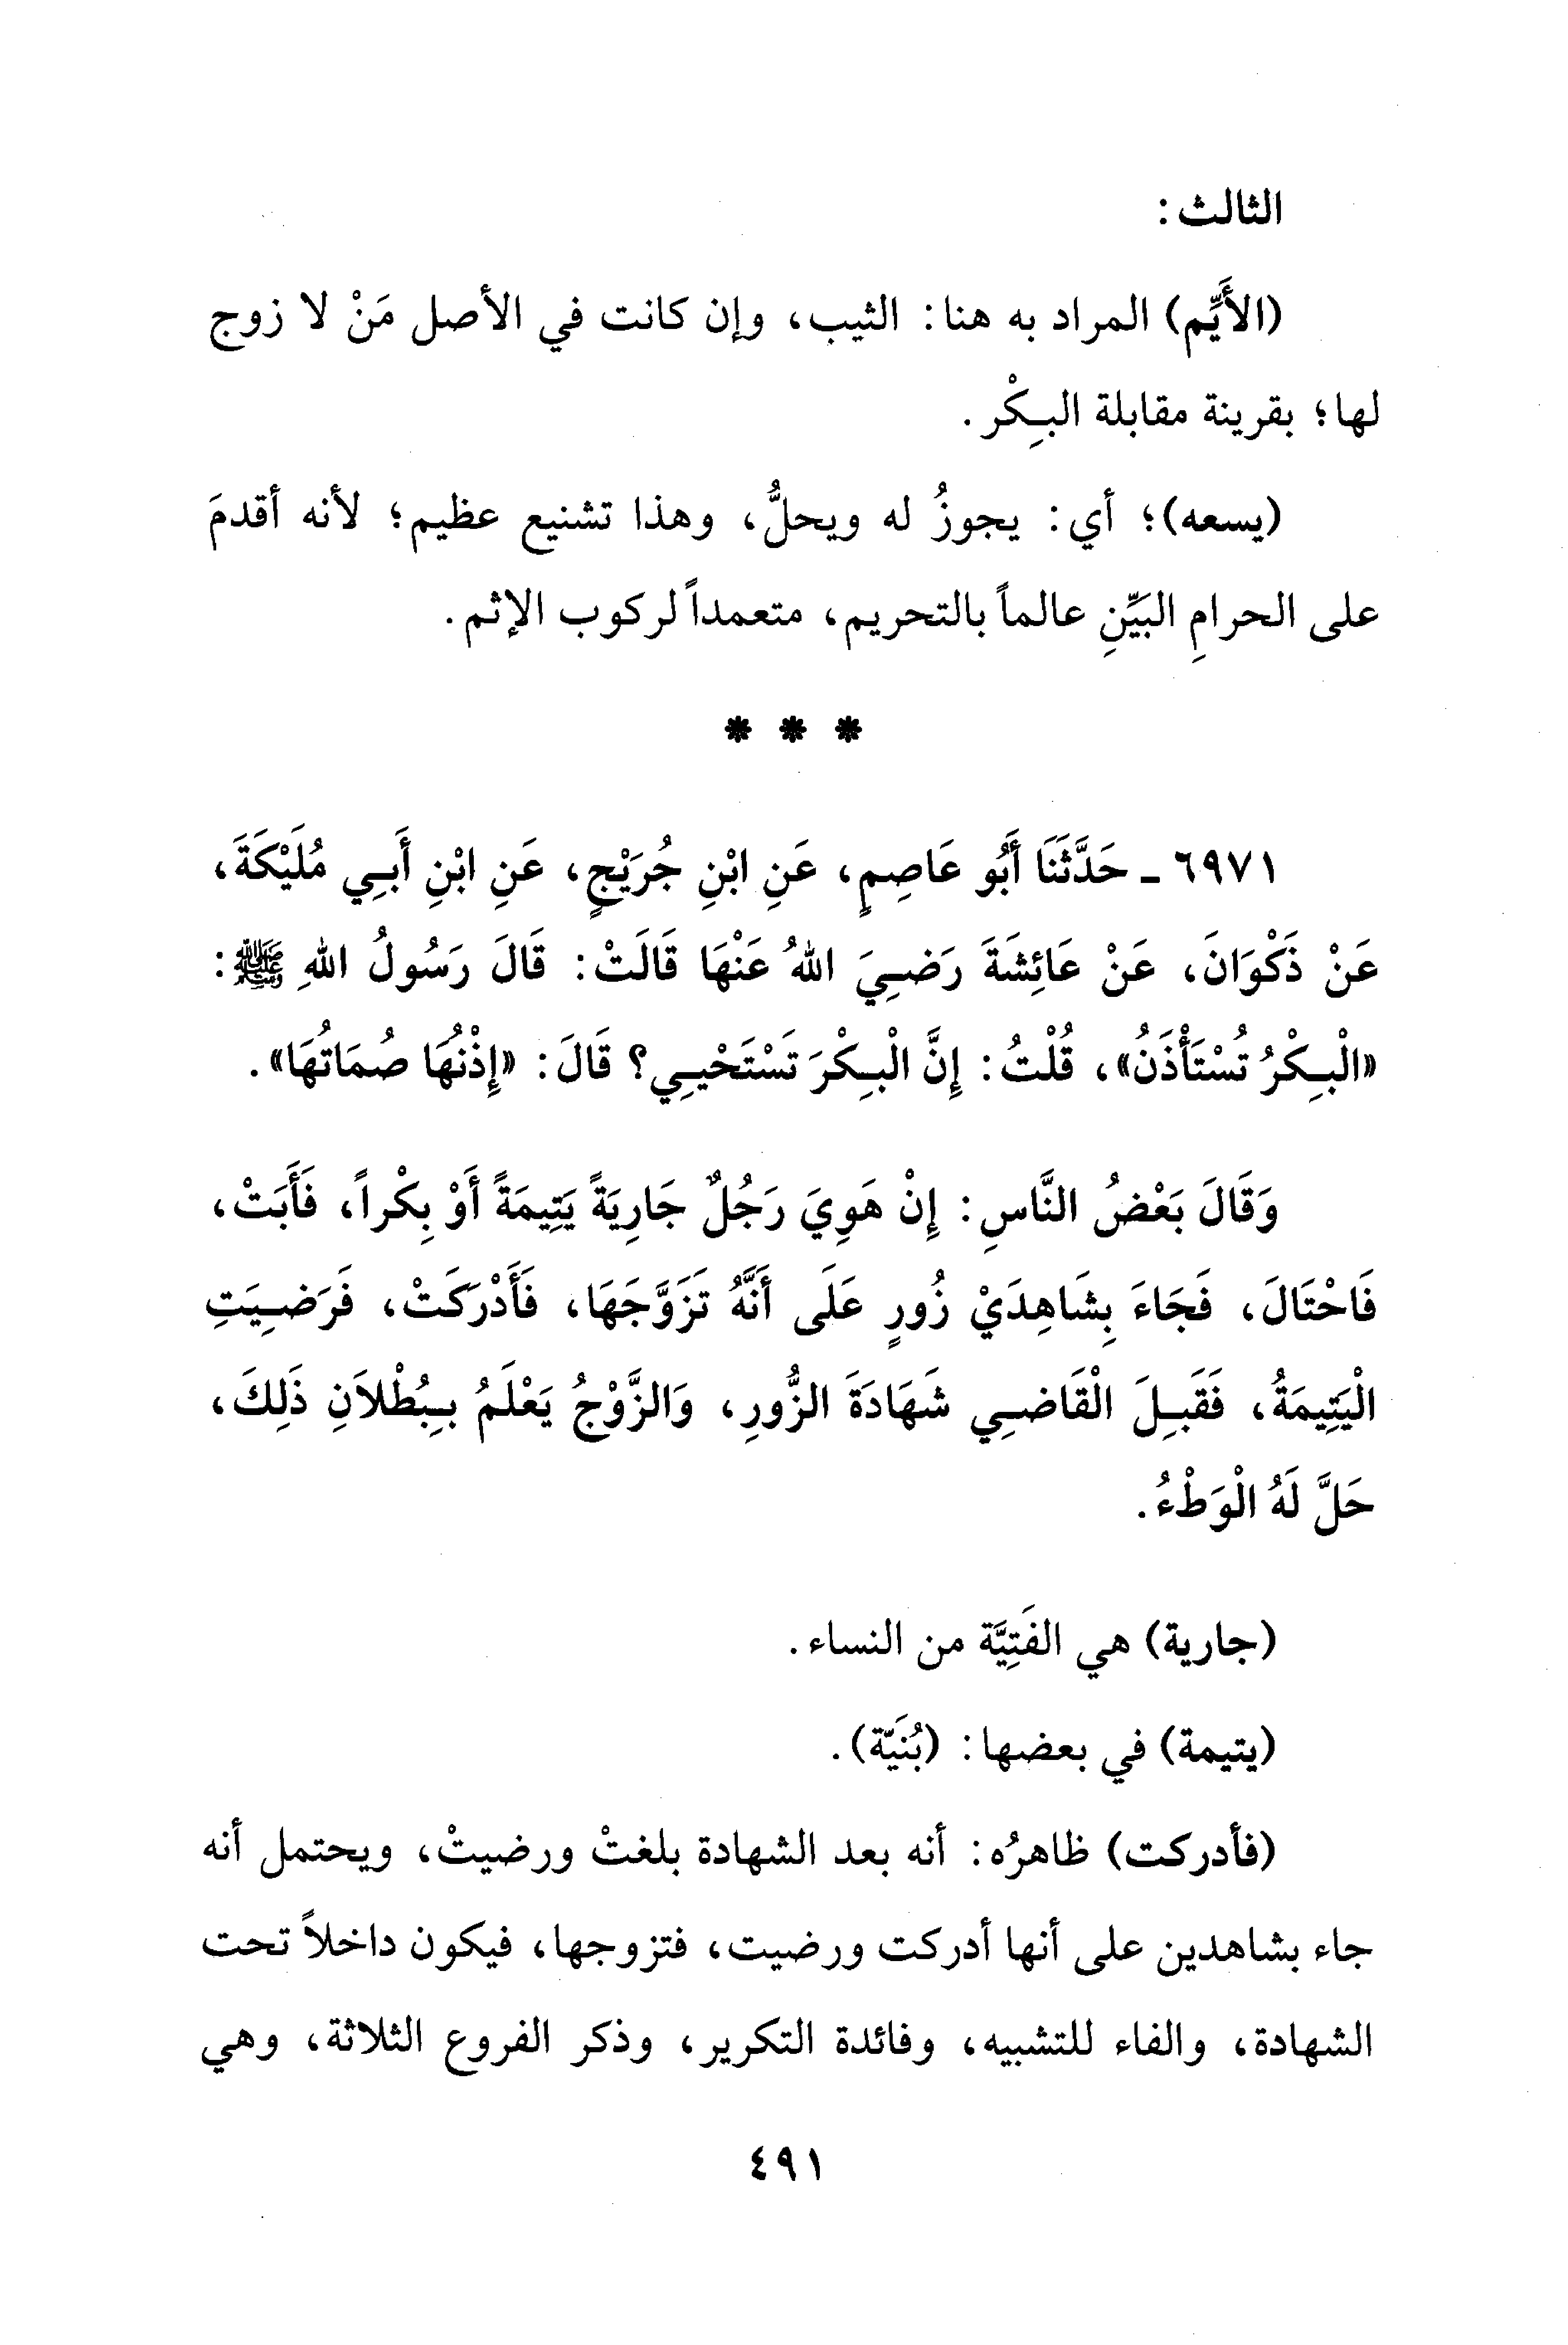 الثالث:
(الأَيِّم) المراد به هنا: الثيب، وإن كانت في الأصل مَنْ لا زوج
لها؛ بقرينة مقابلة البِكْر.
(يسعه)؛ أي: يجوزُ له ويحلُّ، وهذا تشنيع عظيم؛ لأنه أقدمَ
على الحرامِ البَيِّنِ عالماً بالتحريم، متعمداً لركوب الإثم.
* * *
٦٩٧١ - حَدَّثَنَا أَبُو عَاصِمٍ، عَنِ ابْنِ جُرَيْجٍ، عَنِ ابْنِ أَبِي مُلَيْكَةَ،
عَنْ ذَكْوَانَ، عَنْ عَائِشَةَ رَضِيَ اللهُ عَنْهَا قَالَتْ: قَالَ رَسُولُ اللهِ ﷺ:
«الْبِكْرُ تُسْتَأْذَنُ»، قُلْتُ: إِنَّ الْبِكْرَ تَسْتَحْيِي؟ قَالَ: «إِذْنُهَا صُمَاتُهَا».
وَقَالَ بَعْضُ النَّاسِ: إِنْ هَوِيَ رَجُلٌ جَارِيَةً يَتِيمَةً أَوْ بِكْراً، فَأَبَتْ،
فَاحْتَالَ، فَجَاءَ بِشَاهِدَيْ زُورٍ عَلَى أَنَّهُ تَزَوَّجَهَا، فَأَدْرَكَتْ، فَرَضِيَتِ
الْيَتِيمَةُ، فَقَبِلَ الْقَاضِي شَهَادَةَ الزُّورِ، وَالزَّوْجُ يَعْلَمُ بِبُطْلاَنِ ذَلِكَ،
حَلَّ لَهُ الْوَطْءُ.
(جارية) هي الفَتِيَّة من النساء.
(يتيمة) في بعضها: (بُنَيَّة).
(فأدركت) ظاهرُه: أنه بعد الشهادة بلغتْ ورضيتْ، ويحتمل أنه
جاء بشاهدين على أنها أدركت ورضيت، فتزوجها، فيكون داخلاً تحت
الشهادة، والفاء للتشبيه، وفائدة التكرير، وذكر الفروع الثلاثة، وهي
٤٩١